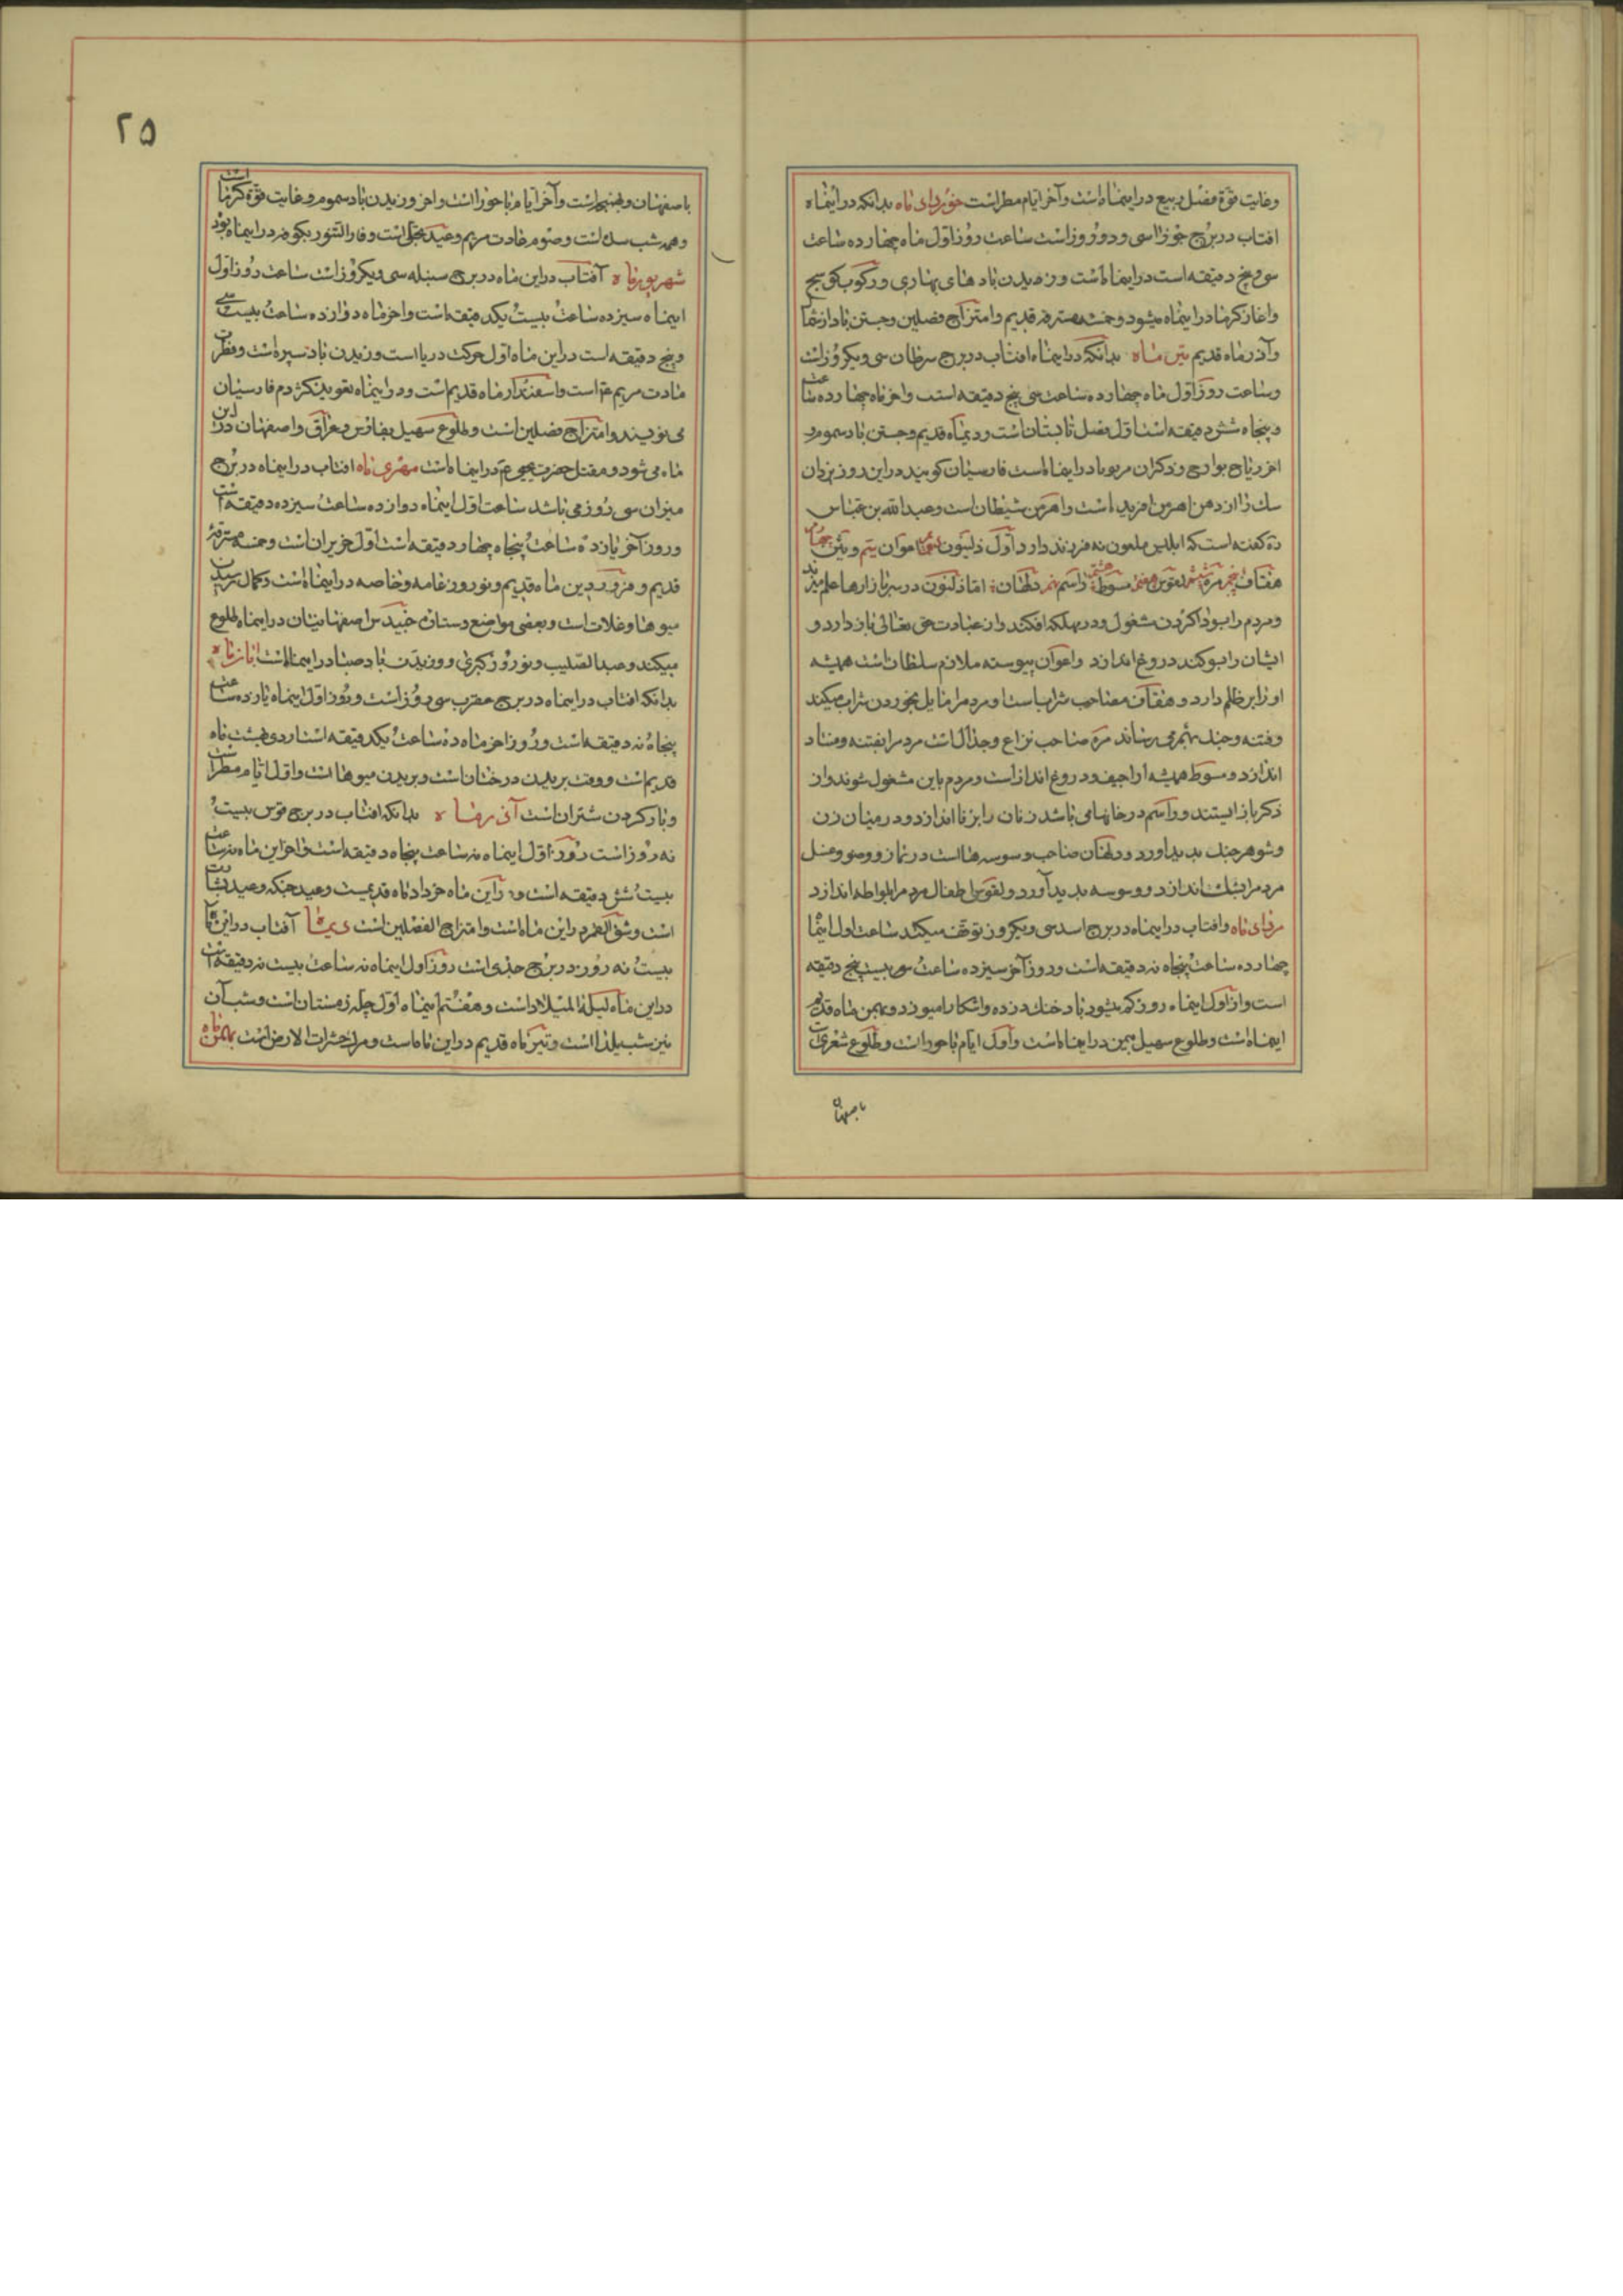 وغایت قوة فصل ربیع در اینماه است وآخر ایام مطر است خورداد ماه بدانکه در اینماه
افتاب در برج جوزا سی و دو روز است ساعت روز اول ماه چهارده ساعت
سی و پنج دقیقه است در اینماه است وزیدن باد های بهاری و رکوب
واغاز کرما در اینماه میشود و خمسه مسترقه قدیم وامتزاج فصلین وجستن باد از شما
وآذر ماه قدیم تیر ماه بدانکه در اینماه افتاب در برج سرطان سی ویکروز است
وساعت روز اول ماه چهارده ساعت سی پنج دقیقه است واخر ماه چهارده ساعت
و پنجاه شش دقیقه است اول فصل تابستان است و دیماه قدیم وجستن باد سموم و
اخر ریاح بوارح در اینماه است فارسیان کویند در این روز یزدان
سنک را از دهن اهرمن افریده است واهرمن شیطان است وعبدالله بن عباس
ره کفته است که ابلیس ملعون نه فرزند دارد اول ذلنیون اعوان وثین
هفتاف پنجم مره ششم لقوس هفتم مسوط هشتم داسم نهم دلهان اما ذلنیون در سر بازارها علم میزند
ومردم را بسودا کردن مشغول و در مهلکه افکند واز عبادت حق تعالی باز دارد و
ایشان را بدروغ اندازد واعوان پیوسته ملازم سلطان است همیشه
او را بر ظلم دارد و هفتاف مصاحب شراب است و مردم را مایل بخوردن شراب میکند
وفتنه وجنک بهم میرساند مره صاحب نزاع وجدال است مردم را بفتنه و فساد
اندازد مسوط همیشه اراجیف و دروغ انداز است و مردم باین مشغول شوند واز
ذکر باز ایستند وداسم در خانها می باشد زنان را بزنا اندازد و در میان زن
وشوهر جنک بدید اورد و دلهان صاحب وسوسه ها است در نماز و وضو وغسل
مردم را بشک اندازد و وسوسه بدید آورد ولقوس اطفال مردم را بلواطه اندازد
مرداد ماه وافتاب در اینماه در برج اسد سی ویکروز توقف میکند ساعت اول اینماه
چهارده ساعت پنجاه نه دقیقه است و روز آخر سیزده ساعت سی بیست پنج دقیقه
است واز اول اینماه روز کم میشود باد خنک و بهمن ماه قدیم
اینماه است وطلوع سهیل بیمن در اینماه است واول ایام باحور است وطلوع شعری است
باصفهان
۲۵
باصفهان وآخر ایام باحورا است واخر وزیدن باد سموم وغایت قوة کرما است
وصوم ولادت مریم وعید تجلی است وفار التنور بکوفه در اینماه بود
شهریور ماه آفتاب در این ماه در برج سنبله سی ویکروز است ساعت روز اول
اینماه سیزده ساعت بیست یکدقیقه است واخر ماه دوازده ساعت بیست
و پنج دقیقه است در این ماه اول حرکت دریا است وزیدن باد است
ولادت مریم ع است واسفندار ماه قدیم است و در اینماه تعویذ کژدم فارسیان
می نویسند وامتزاج فصلین است وطلوع سهیل بفارس وعراق واصفهان در این
ماه می شود و مقتل حضرت یحیی ع در اینماه است مهر ماه افتاب در اینماه در برج
میزان سی روز می باشد ساعت اول اینماه دوازده ساعت سیزده دقیقه است
و روز آخر یازده ساعت پنجاه چهار دقیقه است اول خزیران است وخمسه مسترقه
قدیم و فروردین ماه قدیم ونوروز عامه وخاصه در اینماه است وکمال رسیدن
میوها وغلات است وبعضی مواضع دستان اصفهانیان در اینماه طلوع
میکند وعید الصلیب ونوروز کبری و وزیدن باد صبا در اینماه است ابان ماه
بدانکه افتاب در اینماه در برج عقرب سی روز است و روز اول اینماه یازده ساعت
پنجاه نه دقیقه است و روز اخر ماه ده ساعت یکدقیقه است اردی بهشت ماه
قدیم است ووقت بریدن درختان است وبریدن میوها است واول ایام مطر است
وبار کردن شتران است آذر ماه بدانکه افتاب در برج قوس بیست
نه روز است روز اول اینماه نه ساعت پنجاه دقیقه است واخر این ماه نه ساعت
بیست شش دقیقه است در این ماه خرداد ماه قدیمست وعید وعید
است وشق القمر در این ماه است وامتزاج الفصلین است دیماه آفتاب در این ماه
بیست نه روز در برج جدی است روز اول اینماه نه ساعت بیست نه دقیقه است
در این ماه لیلة المیلاد است وهفتم اینماه اول چله زمستان است وشب آن
نیز شب یلدا است وتیر ماه قدیم در این ماه است ومرک حشرات الارض است بهمن ماه